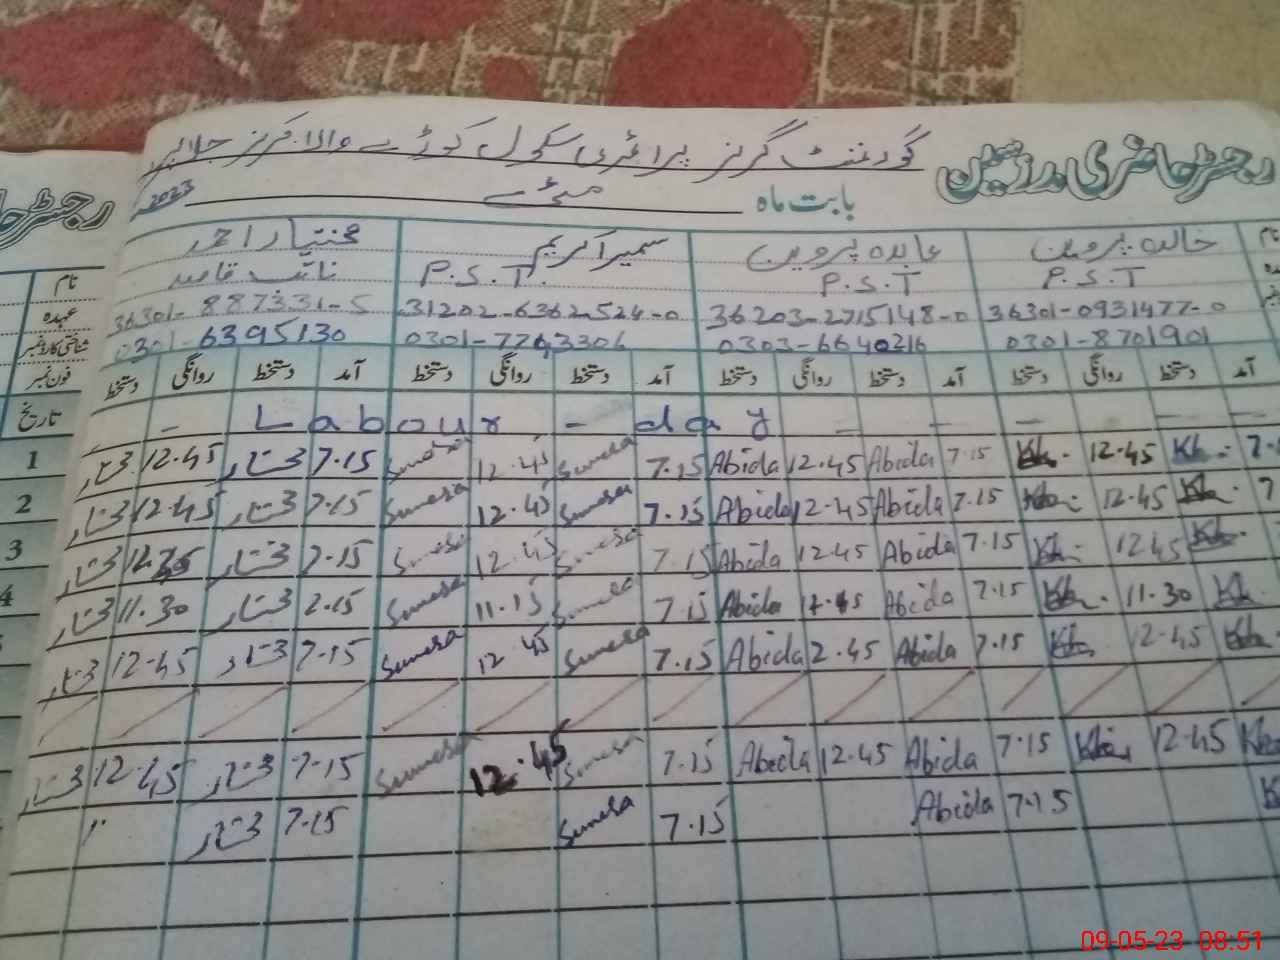 رجسٹر حاضری مدرسین گورنمنٹ گرلز پرائمری سکول
بابت ماہ مئی 2023
نام خالدہ پروین عابدہ پروین سمیرا کریم مختیار احمد
عہدہ P.S.T P.S.T P.S.T. نائب قاصد
شناختی کارڈ نمبر 36301-0931477-0 36203-2715148-0 31202-6362524-0 36301-887331-5
فون نمبر 0301-8701901 0303-6640216 0301-7763306 0301-6395130
تاریخ آمد دستخط روانگی دستخط آمد دستخط روانگی دستخط آمد دستخط روانگی دستخط آمد دستخط روانگی دستخط
1 Labour - day
2 Kh. 12.45 Kh. 7.15 Abida 12.45 Abida 7.15 Sumera 12.45 Sumera 7.15 مختار 12.45 مختار
3 Kh. 12.45 Kh. 7.15 Abida 12.45 Abida 7.15 Sumera 12.45 Sumera 7.15 مختار 12.45 مختار
4 Kh. 12.45 Kh. 7.15 Abida 12.45 Abida 7.15 Sumera 12.45 Sumera 7.15 مختار مختار
Kh. 11.30 Kh. 7.15 Abida Abida 7.15 Sumera 11.15 Sumera 7.15 مختار 11.30 مختار
Kh. 12.45 Kh. 7.15 Abida 2.45 Abida 7.15 Sumera 12.45 Sumera 7.15 مختار 12.45 مختار
Kh. 12.45 Kh. 7.15 Abida 12.45 Abida 7.15 Sumera 12.45 Sumera 7.15 مختار 12.45 مختار
7.15 Abida 7.15 Sumera 7.15 مختار
09-05-23 08:51